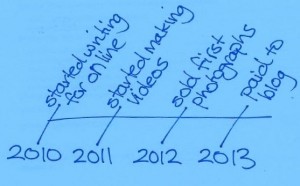 started writing
for online
started making
videos
sold first
photographs
paid to
blog
2010 2011 2012 2013